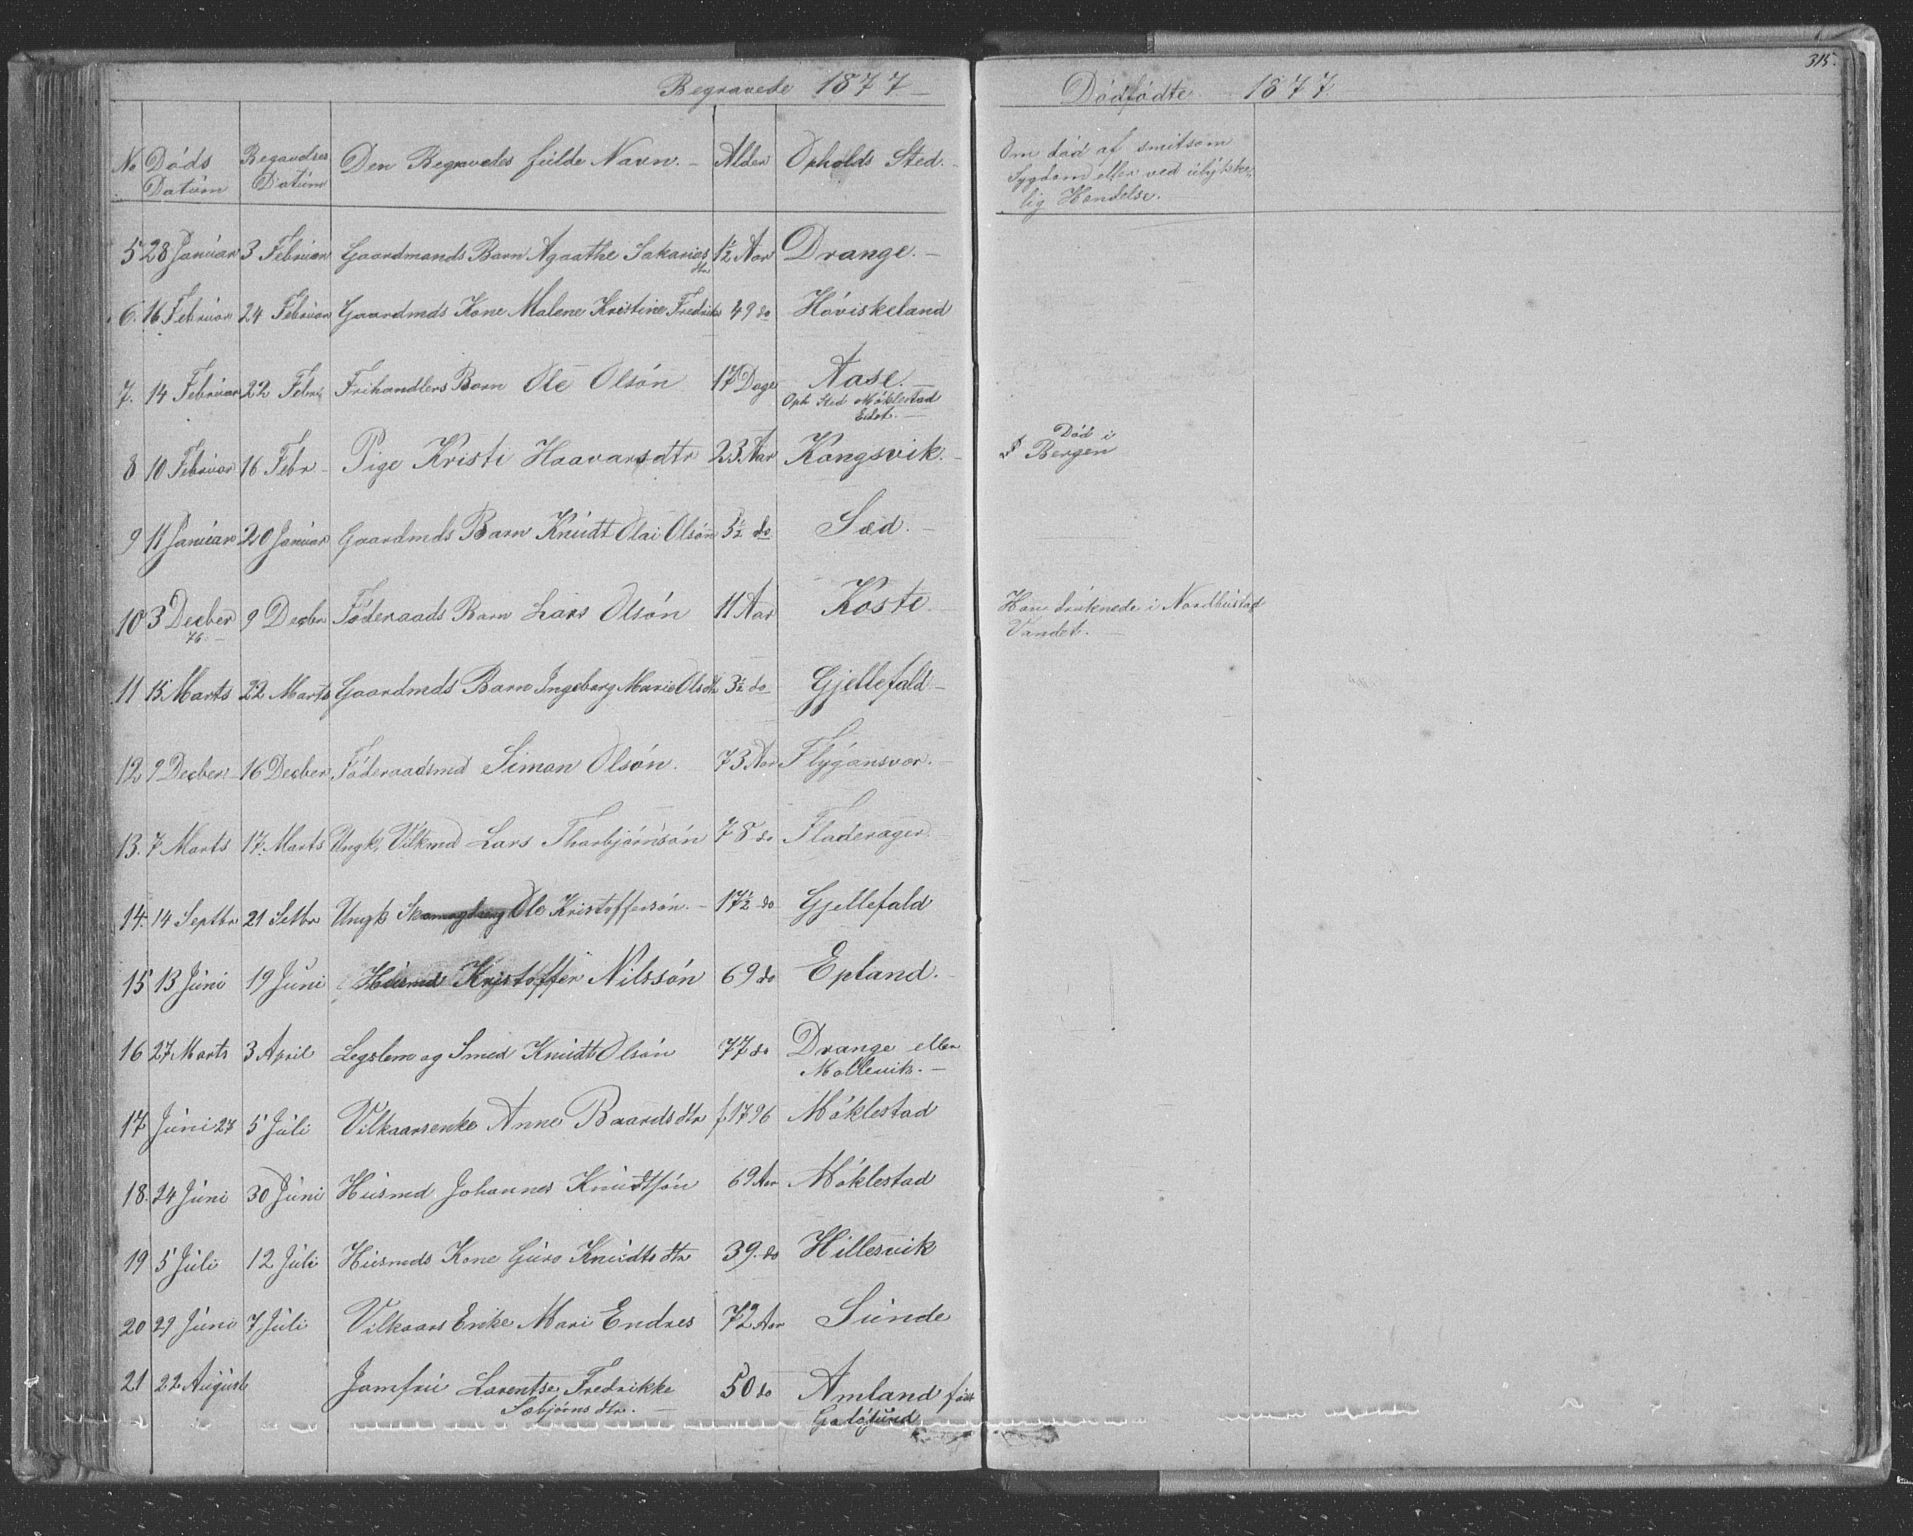 Begravede 1877
No Døds Datum Begravelses Datum Den Begravedes fulde Navn. Alder Opholds Sted.
5 28 Januar 3 Februar Gaardmands Barn Agaathe Sakarias dtr 1½ Aar Drange.
6. 16 Februar 24 Februar Gaardmds Kone Malene Kristine Fredriks 49 do Høviskeland
7. 14 Februar 22 Febr Frihandlers Barn Ole Olsøn 17 Dage Aase.
Oph Sted Møklestad
Eidet.
8 10 Februar 16 Febr Pige Kristi Haavarsdtr 23 Aar Kongsvik.
9 11 Januar 20 Januar Gaardmds Barn Knudt Olai Olsøn 5½ do Sæd.
10 3 Decber 76 9 Decber Føderaads Barn Lars Olsøn 11 Aar Koste.
11 15 Marts 22 Marts Gaardmds Barn Ingeborg Marie Olsdtr 3½ do Gjellefald
12 9 Decber 16 Decber Føderaadsmd Simon Olsøn. 73 Aar Flygansvær.
13. 7 Marts 17 Marts Ungk, Vilkmd Lars Thorbjørnsøn 78 do Fladerager.
14. 14 Septbr 21 Setbr Ungk Ole Kristoffersøn. 17½ do Gjellefald
15 13 Juni 19 Juni Husmd Kristoffer Nilssøn 69 do Epland.
16 27 Marts 3 April Legslem og Smed Knudt Olsøn 77 do Drange eller
Mollevik.
17 Juni 27 5 Juli Vilkaarsenke Anne Baardsdtr f. 1796 Møklestad
18. 24 Juni 30 Juni Husmd Johannes Knudtsøn 69 Aar Møklestad
19 5 Juli 12 Juli Husmds Kone Guro Knudtsdtr 39. do Hillesvik
20 29 Juni 7 Juli Vilkaars Enke Mari Endres 72 Aar Sunde
21 22 August Jomfru Lorentse Fredrikke 50 do Amland født
Sæbjørns dtr.
315.
Dødfødte 1877
Om død af smitsom
Sygdom eller ved ulykke-
lig Hændelse.
Død i
Bergen
Han druknede i Nordhustad
Vandet.